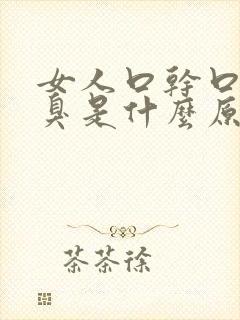 女人口幹口
臭是什麼原
茶茶徐